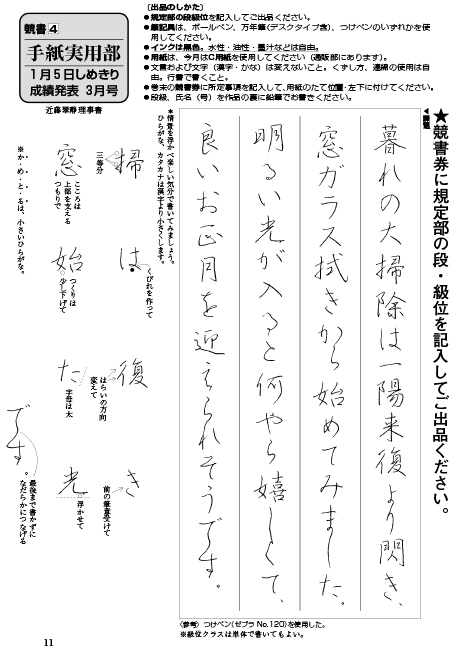 競書4
手紙実用部
1月5日しめきり
成績発表 3月号
近藤翠静理事書
［出品のしかた］
●規定部の段級位を記入してご出品ください。
●筆記具は、ボールペン、万年筆(デスクタイプ含)、つけペンのいずれかを使用してください。
●インクは黒色。水性・油性・墨汁などは自由。
●用紙は、今月はC用紙を使用してください（通販部にあります）。
●文言および文字（漢字・かな）は変えないこと。くずし方、連綿の使用は自由。行書で書くこと。
●巻末の競書券に所定事項を記入して、用紙のたて位置・左下に付けてください。
●段級、氏名（号）を作品の裏に鉛筆でお書きください。
★競書券に規定部の段・級位を記入してご出品ください。
◀課題
暮れの大掃除は一陽来復より閃き、
窓ガラス拭きから始めてみました。
明るい光が入ると何やら嬉しくて、
良いお正月を迎えられそうです。
＊情景を浮かべ楽しい気分で書いてみましょう。
ひらがな、カタカナは漢字より小さくします。
掃
三等分
は
くびれを作って
復
はらいの方向
変えて
き
前の筆意受けて
窓
こころは
上部を支える
つもりで
始
つくりは
少し下げて
た
字母は太
光
浮かせて
です。
最後まで書かずに
なだらかにつなげる
※か・め・と・るは、小さいひらがな。
〈参考〉つけペン(ゼブラ No.120)を使用した。
※級位クラスは単体で書いてもよい。
11